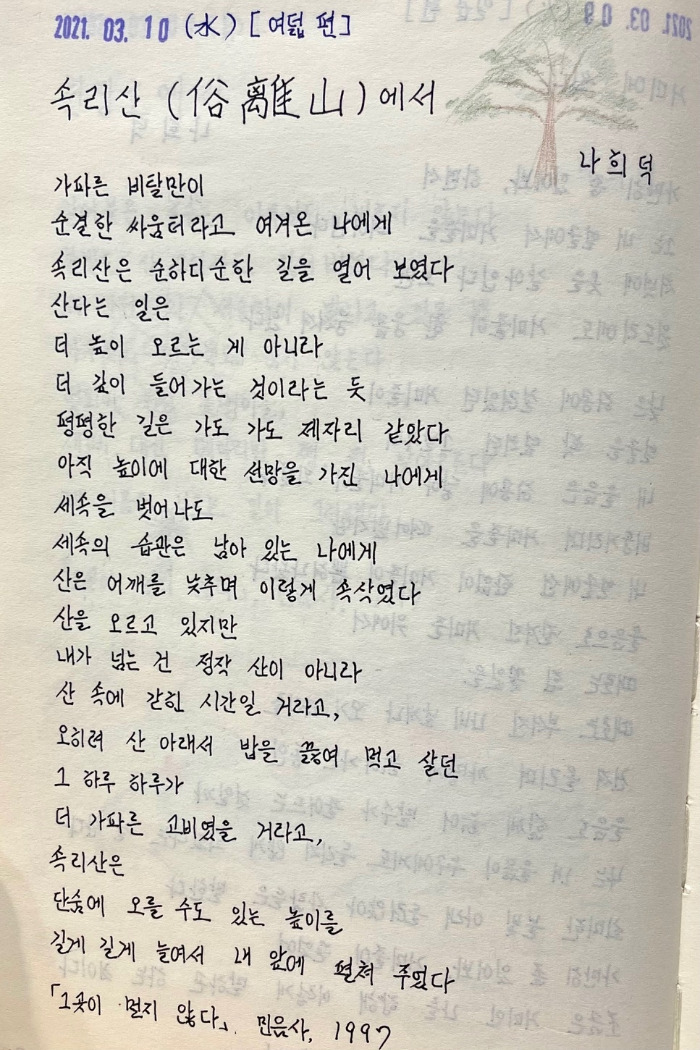 2021. 03. 10 (水) [여덟 편]
속리산 (俗離山)에서
나희덕
가파른 비탈만이
순결한 싸움터라고 여겨온 나에게
속리산은 순하디순한 길을 열어 보였다
산다는 일은
더 높이 오르는 게 아니라
더 깊이 들어가는 것이라는 듯
평평한 길은 가도 가도 제자리 같았다
아직 높이에 대한 선망을 가진 나에게
세속을 벗어나도
세속의 습관은 남아 있는 나에게
산은 어깨를 낮추며 이렇게 속삭였다
산을 오르고 있지만
내가 넘는 건 정작 산이 아니라
산 속에 갇힌 시간일 거라고,
오히려 산 아래서 밥을 끓여 먹고 살던
그 하루 하루가
더 가파른 고비였을 거라고,
속리산은
단숨에 오를 수도 있는 높이를
길게 길게 늘여서 내 앞에 펼쳐 주었다
「그곳이 멀지 않다」. 민음사, 1997